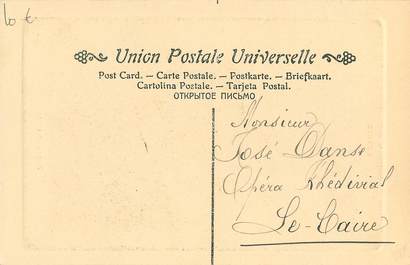 10 €
Union Postale Universelle
Post Card. – Carte Postale. – Postkarte. – Briefkaart.
Cartolina Postale. – Tarjeta Postal.
ОТКРЫТОЕ ПИСЬМО
Monsieur
José Danse
Opéra Khédivial
Le-Caire